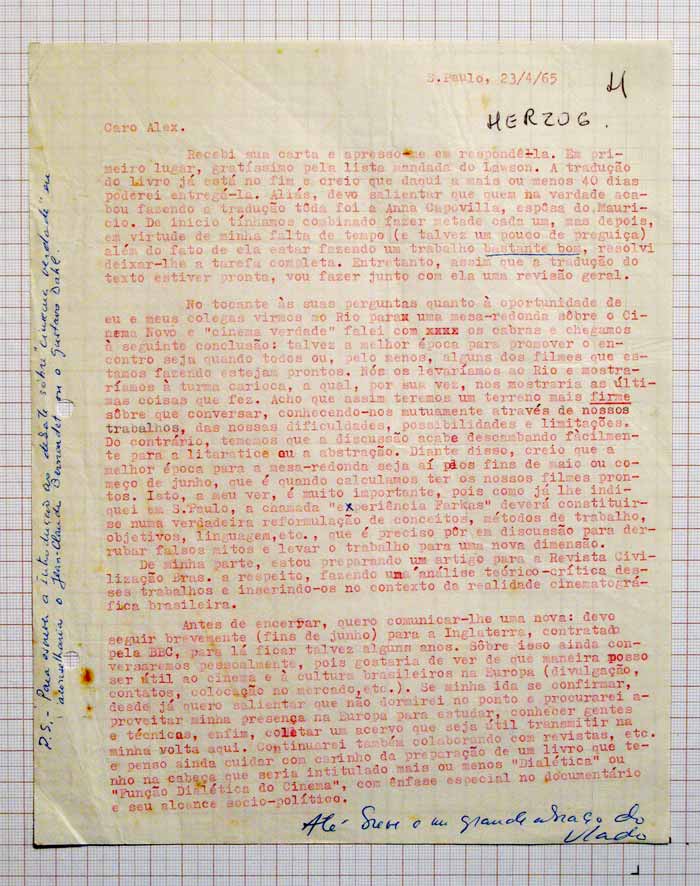 S.Paulo, 23/4/65
H
HERZOG.
Caro Alex.
Recebi sua carta e apresso-me em respondê-la. Em pri-
meiro lugar, gratíssimo pela lista mandada do Lawson. A tradução
do livro já está no fim e creio que daqui a mais ou menos 40 dias
poderei entregá-la. Aliás, devo salientar que quem na verdade aca-
bou fazendo a tradução tôda foi a Anna Capovilla, espôsa do Mauri-
cio. De início tínhamos combinado fazer metade cada um, mas depois,
em virtude de minha falta de tempo (e talvez um pouco de preguiça)
além do fato de ela estar fazendo um trabalho bastante bom, resolvi
deixar-lhe a tarefa completa. Entretanto, assim que a tradução do
texto estiver pronta, vou fazer junto com ela uma revisão geral.
No tocante às suas perguntas quanto à oportunidade de
eu e meus colegas virmos ao Rio parax uma mesa-redonda sôbre o Ci-
nema Novo e "cinema verdade" falei com xxxx os cabras e chegamos
à seguinte conclusão: talvez a melhor época para promover o en-
contro seja quando todos ou, pelo menos, alguns dos filmes que es-
tamos fazendo estejam prontos. Nós os levaríamos ao Rio e mostra-
ríamos à turma carioca, a qual, por sua vez, nos mostraria as últi-
mas coisas que fez. Acho que assim teremos um terreno mais firme
sôbre que conversar, conhecendo-nos mutuamente através de nossos
trabalhos, das nossas dificuldades, possibilidades e limitações.
Do contrário, tememos que a discussão acabe descambando fàcilmen-
te para a litaratice ou a abstração. Diante disso, creio que a
melhor época para a mesa-redonda seja aí plos fins de maio ou co-
meço de junho, que é quando calculamos ter os nossos filmes pron-
tos. Isto, a meu ver, é muito importante, pois como já lhe indi-
quei em S.Paulo, a chamada "experiência Farkas" deverá constituir-
se numa verdadeira reformulação de conceitos, métodos de trabalho,
objetivos, linguagem,etc., que é preciso pôr em discussão para der-
rubar falsos mitos e levar o trabalho para uma nova dimensão.
De minha parte, estou preparando um artigo para a Revista Civi-
lização Bras. a respeito, fazendo uma análise teórico-crítica des-
ses trabalhos e inserindo-os no contexto da realidade cinematográ-
fica brasileira.
Antes de encerrar, quero comunicar-lhe uma nova: devo
seguir brevemente (fins de junho) para a Inglaterra, contratado
pela BBC, para lá ficar talvez alguns anos. Sôbre isso ainda con-
versaremos pessoalmente, pois gostaria de ver de que maneira posso
ser útil ao cinema e à cultura brasileiros na Europa (divulgação,
contatos, colocação no mercado,etc.). Se minha ida se confirmar,
desde já quero salientar que não dormirei no ponto e procurarei a-
proveitar minha presença na Europa para estudar, conhecer gentes
e técnicas, enfim, coletar um acervo que seja útil transmitir na
minha volta aqui. Continuarei também colaborando com revistas, etc.
e penso ainda cuidar com carinho da preparação de um livro que te-
nho na cabeça que seria intitulado mais ou menos "Dialética" ou
"Função Dialética do Cinema", com ênfase especial no documentário
e seu alcance socio-político.
Até breve e um grande abraço do
Vlado
P.S. - Para escrever a introdução ao debate sôbre "cinema verdade" eu
aconselharia o Jean-Claude Bernardet ou o Gustavo Dahl.